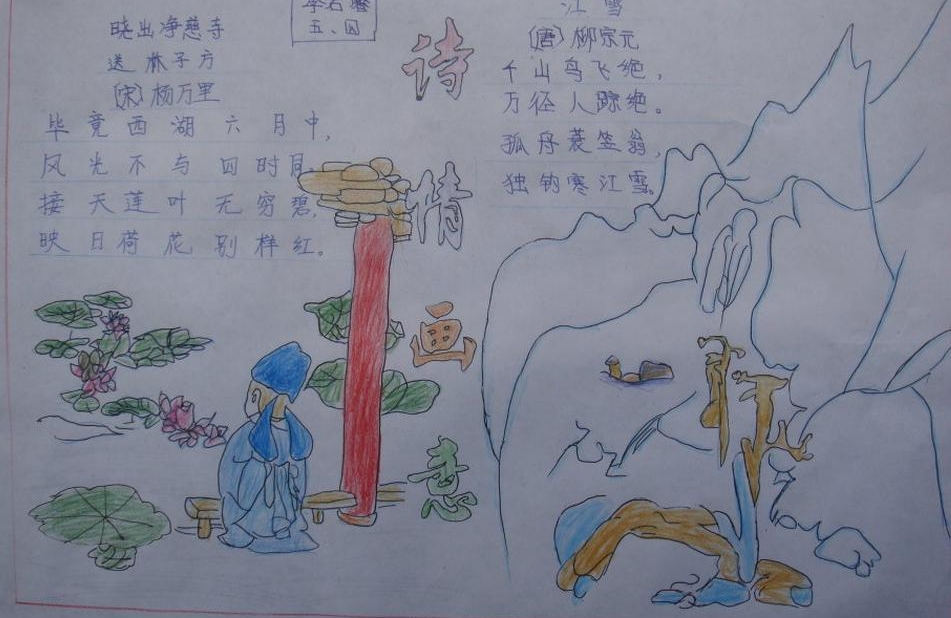 晓出净慈寺
送林子方
(宋)杨万里
毕竟西湖六月中，
风光不与四时
接天莲叶无穷碧，
映日荷花别样红。
五、四
诗
情
画
意
江雪
(唐)柳宗元
千山鸟飞绝，
万径人踪绝。
孤舟蓑笠翁，
独钓寒江雪。